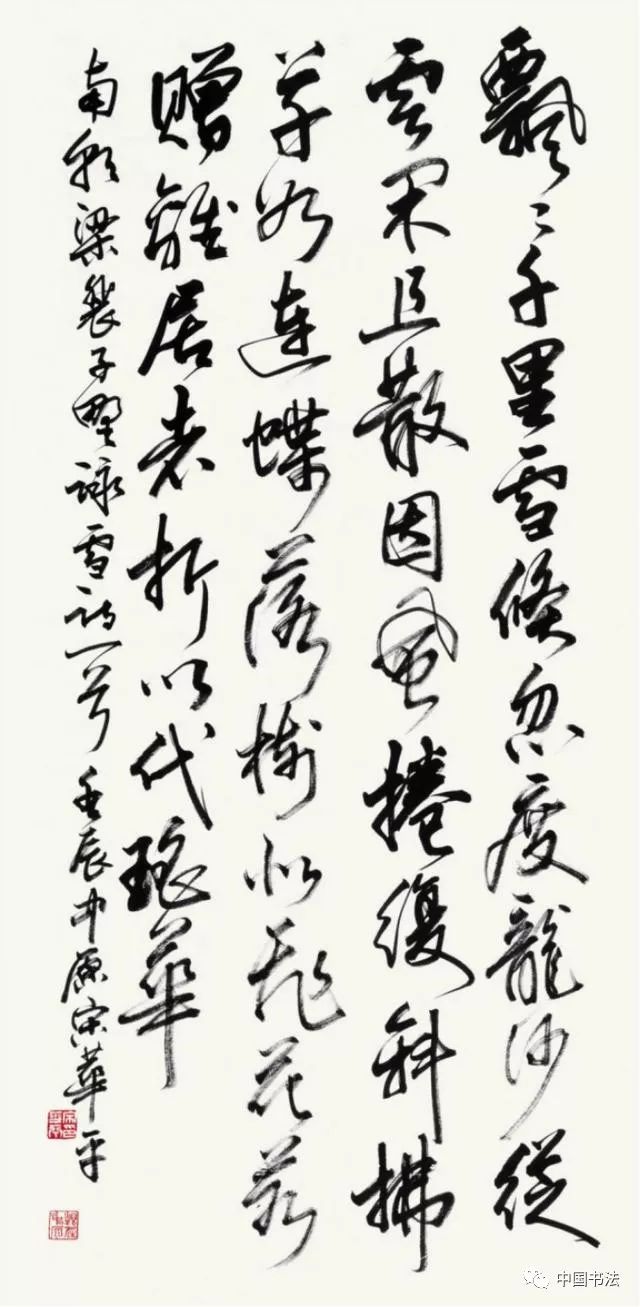 飄〻千里雪倏忽度龍沙從
雲且散因風捲復斜拂
草如連蝶落樹似飛花若
贈離居者折以代瑤華
南朝梁裴子野詠雪詩一首 壬辰中原宋華平
中国书法